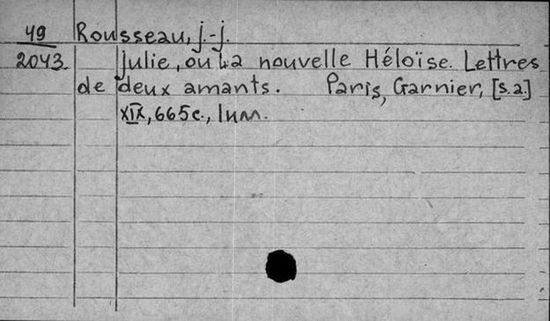 49 Rousseau, j.-j.
2043. Julie, ou la nouvelle Héloïse. Lettres
de deux amants. Paris, Garnier, [s.a.]
XIX, 665с., 1илл.